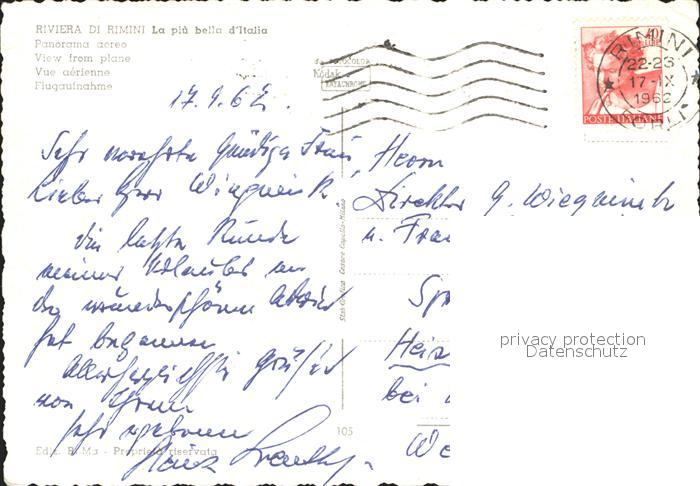 RIVIERA DI RIMINI La più bella d'Italia
Panorama aereo
View from plane
Vue aérienne
Flugaufnahme
da FOTOCOLOR
Kodak
EKTACHROME
RIMINI
22-23
17-IX
1962
FORLI
POSTE ITALIANE
17.9.62.
Sehr verehrte Gnädige Frau,
Lieber Herr
die letzte Runde
meines Urlaubes an
der wunderschönen Adria
hat begonnen
Allerherzlichste Grüße
von Ihrem
sehr ergebenen
Herrn
Direktor G.
u. Frau
Sp
Heiz
bei
We
Cesare Capello-Milano
105
Ediz. - Proprietà riservata
privacy protection
Datenschutz